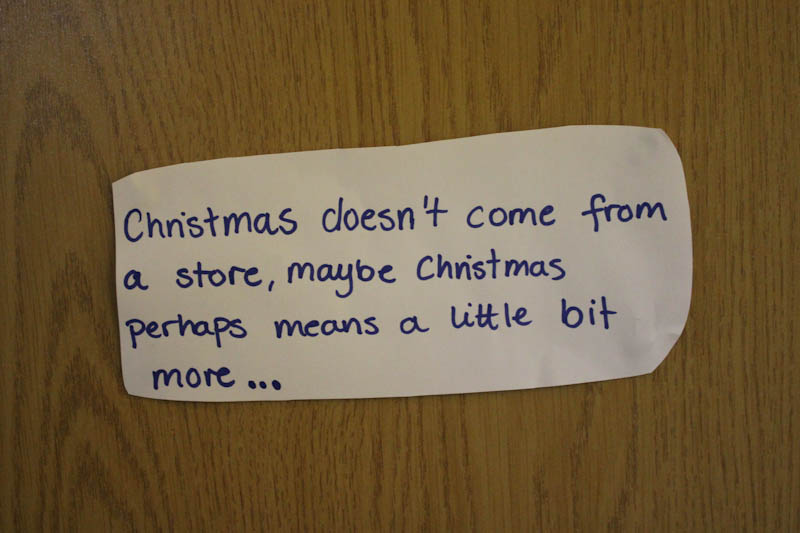 Christmas doesn't come from
a store, maybe Christmas
perhaps means a little bit
more...